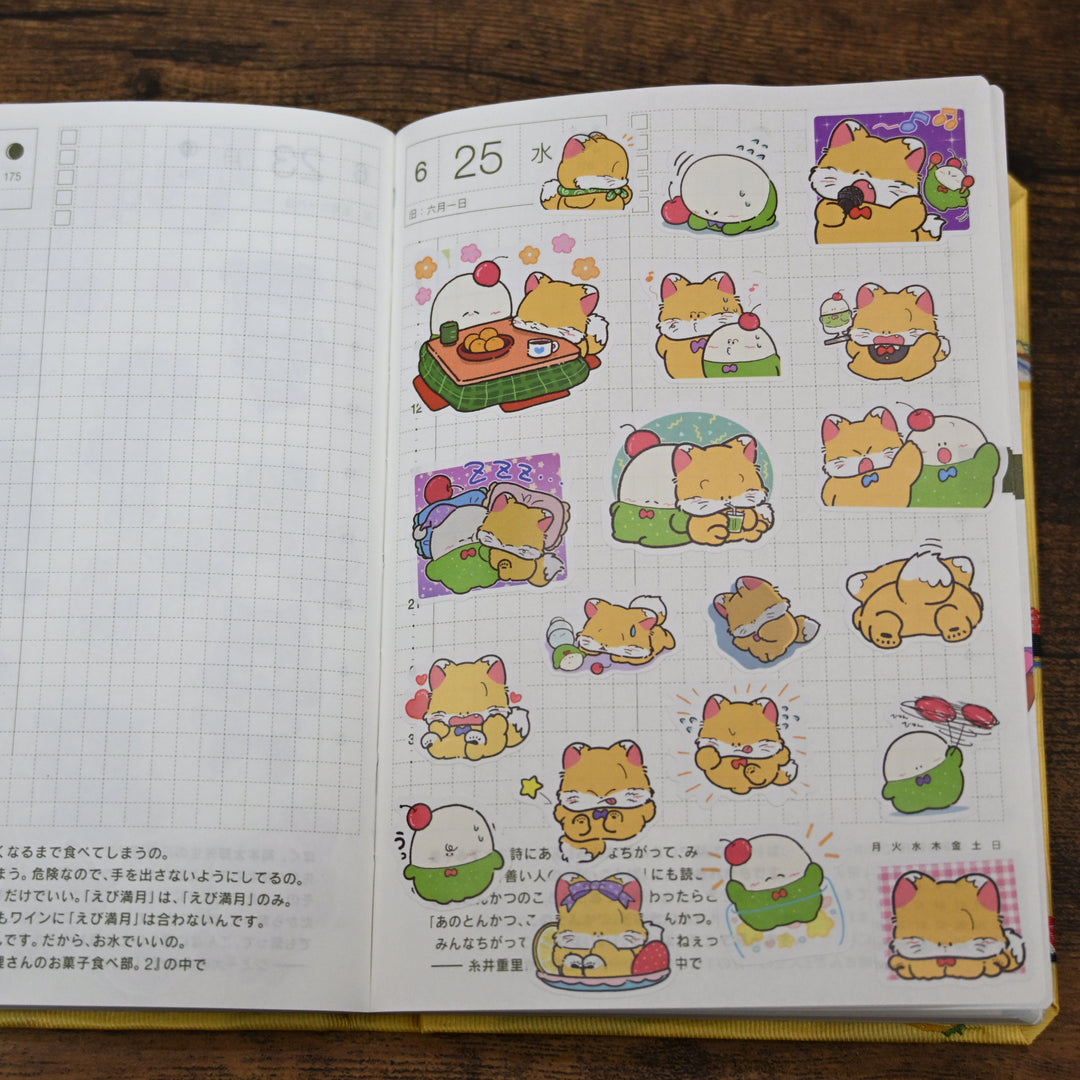 175
くなるまで食べてしまうの。
まう。危険なので、手を出さないようにしてるの。
だけでいい。「えび満月」は、「えび満月」のみ。
もワインに「えび満月」は合わないんです。
んです。だから、お水でいいの。
理さんのお菓子食べ部。2』の中で
6 25 水
旧:六月一日
ZZZ..
12
2
3
うっ
月 火 水 木 金 土 日
詩にあ なちがって、み
善い人 にも読こ
んかつのこ わったらこ
「あのとんかつ、こ んかつ。
みんなちがって ねえつ
── 糸井重里 中で